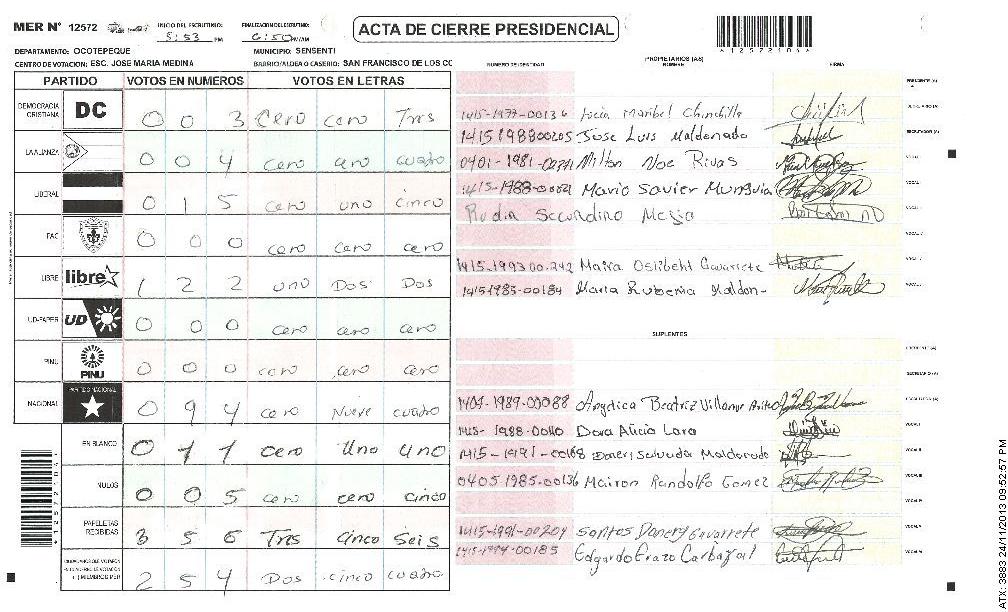 MER N° 12572
INICIO DEL ESCRUTINIO: 5:53 PM
FINALIZACION DEL ESCRUTINIO: 6:50 PM/AM
ACTA DE CIERRE PRESIDENCIAL
DEPARTAMENTO: OCOTEPEQUE MUNICIPIO: SENSENTI
CENTRO DE VOTACION: ESC. JOSE MARIA MEDINA BARRIO/ALDEA O CASERIO: SAN FRANCISCO DE LOS CO
PARTIDO VOTOS EN NUMEROS VOTOS EN LETRAS
DEMOCRACIA CRISTIANA DC 0 0 3 Cero cero Tres
LA ALIANZA 0 0 4 cero cero cuatro
LIBERAL 0 1 5 cero uno cinco
FAC 0 0 0 cero cero cero
LIBRE libre 1 2 2 uno Dos Dos
UD-FAPER UD 0 0 0 cero cero cero
PINU PINU 0 0 0 cero cero cero
NACIONAL PARTIDO NACIONAL 0 9 4 cero Nueve cuatro
EN BLANCO 0 1 1 cero Uno Uno
NULOS 0 0 5 cero cero cinco
PAPELETAS RECIBIDAS 3 5 6 Tres cinco Seis
2 5 4 Dos cinco cuatro
NUMERO DE IDENTIDAD PROPIETARIOS (AS) NOMBRE FIRMA
PRESIDENTE (A)
Maribel Chinchilla
ESCRUTADOR (A)
1415198800205 Jose Luis Maldonado
0401-1981- Milton Noe Rivas
1415-1988-00021 Mario Savier Munguia
Secundino Mejia
1415-1993 00242 Maira Gavarrete
1415 1985-00184 Maria Rubenia Maldon-
SUPLENTES
PRESIDENTE (A)
SECRETARIO (A)
1401-1989-00088 Angelica Beatriz Villamar
1415-1988-00110 Dora Alicia Lara
1415-1991-00168 Maldonado
0405-1985-00136 Mairon Randolfo Gomez
1415-1991-00204 Santos Gavarrete
1415-1994-00185 Edgardo Erazo Carbajal
ATX: 3883 24/11/2013 09:52:57 PM